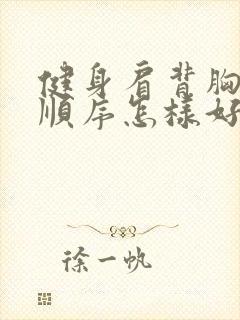 健身肩背胸
順序怎樣好
徐一帆